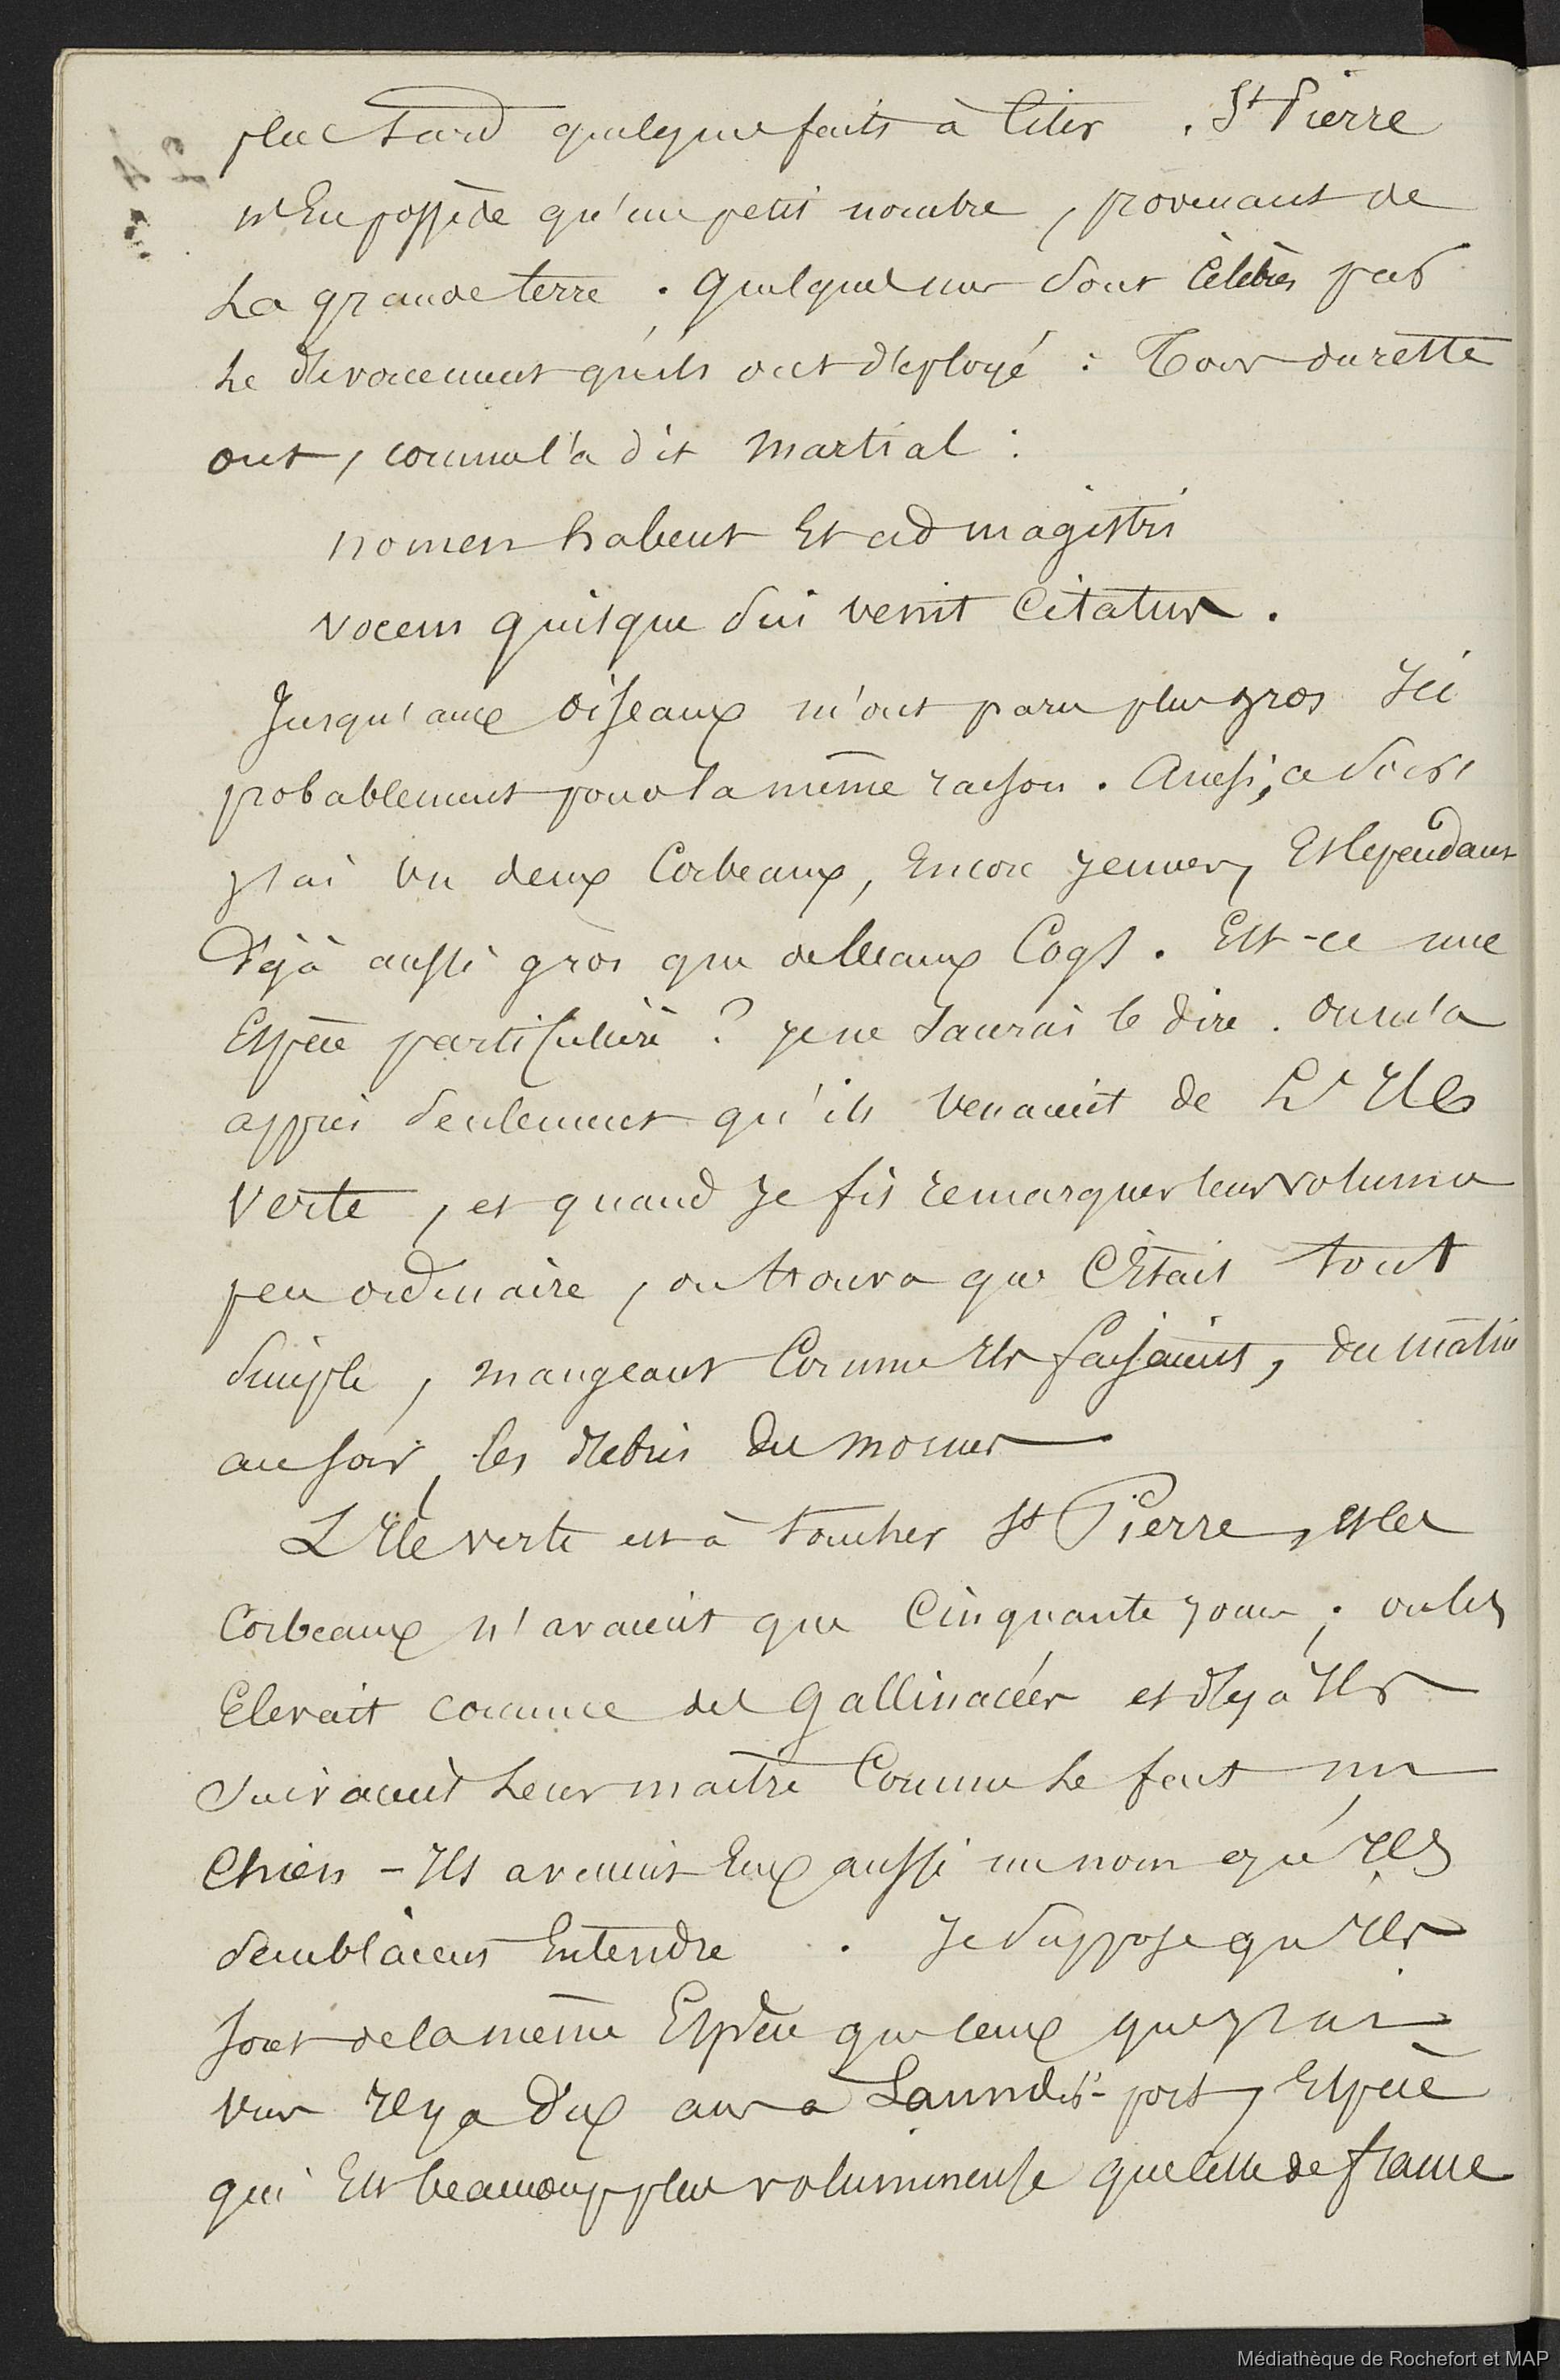 plus tard quelques faits à citer . St Pierre
n'En possède qu'un petit nombre , provenant de
La grande terre . quelques uns sont Célèbres par
Le dévouement qu'ils ont déployé : Tous du reste
ont , comme l'a dit Martial :
nomen habent Et ad magistri
vocem quisque sui venit Citatus .
Jusqu'aux oiseaux m'ont paru plus gros Ici
probablement pour la même raison . Ainsi, ce soir
j'ai vu deux Corbeaux, Encore jeunes, Et Cependant
Déjà aussi gros que de beaux Coqs . Est-ce une
Espèce particulière ? je ne saurais le dire . on m'a
appris seulement qu'ils venaient de L'Ile
Verte , et quand je fis remarquer leur volume
peu ordinaire , on trouva que C'Etait tout
simple , mangeant Comme Ils faisaient, du matin
au soir, les débris de morues
L'Ile verte est à toucher St Pierre, et les
Corbeaux n'avaient que Cinquante jours ; on les
Elevait comme des gallinacées et déjà Ils
suivaient Leur maître Comme Le fait un
Chien - Ils avaient Eux aussi un nom qu'Ils
semblaient Entendre . Je suppose qu'Ils
sont de la même Espèce que ceux que j'ai
vus Il y a dix ans à port, Espèce
qui Est beaucoup plus volumineuse que celle de france
Médiathèque de Rochefort et MAP